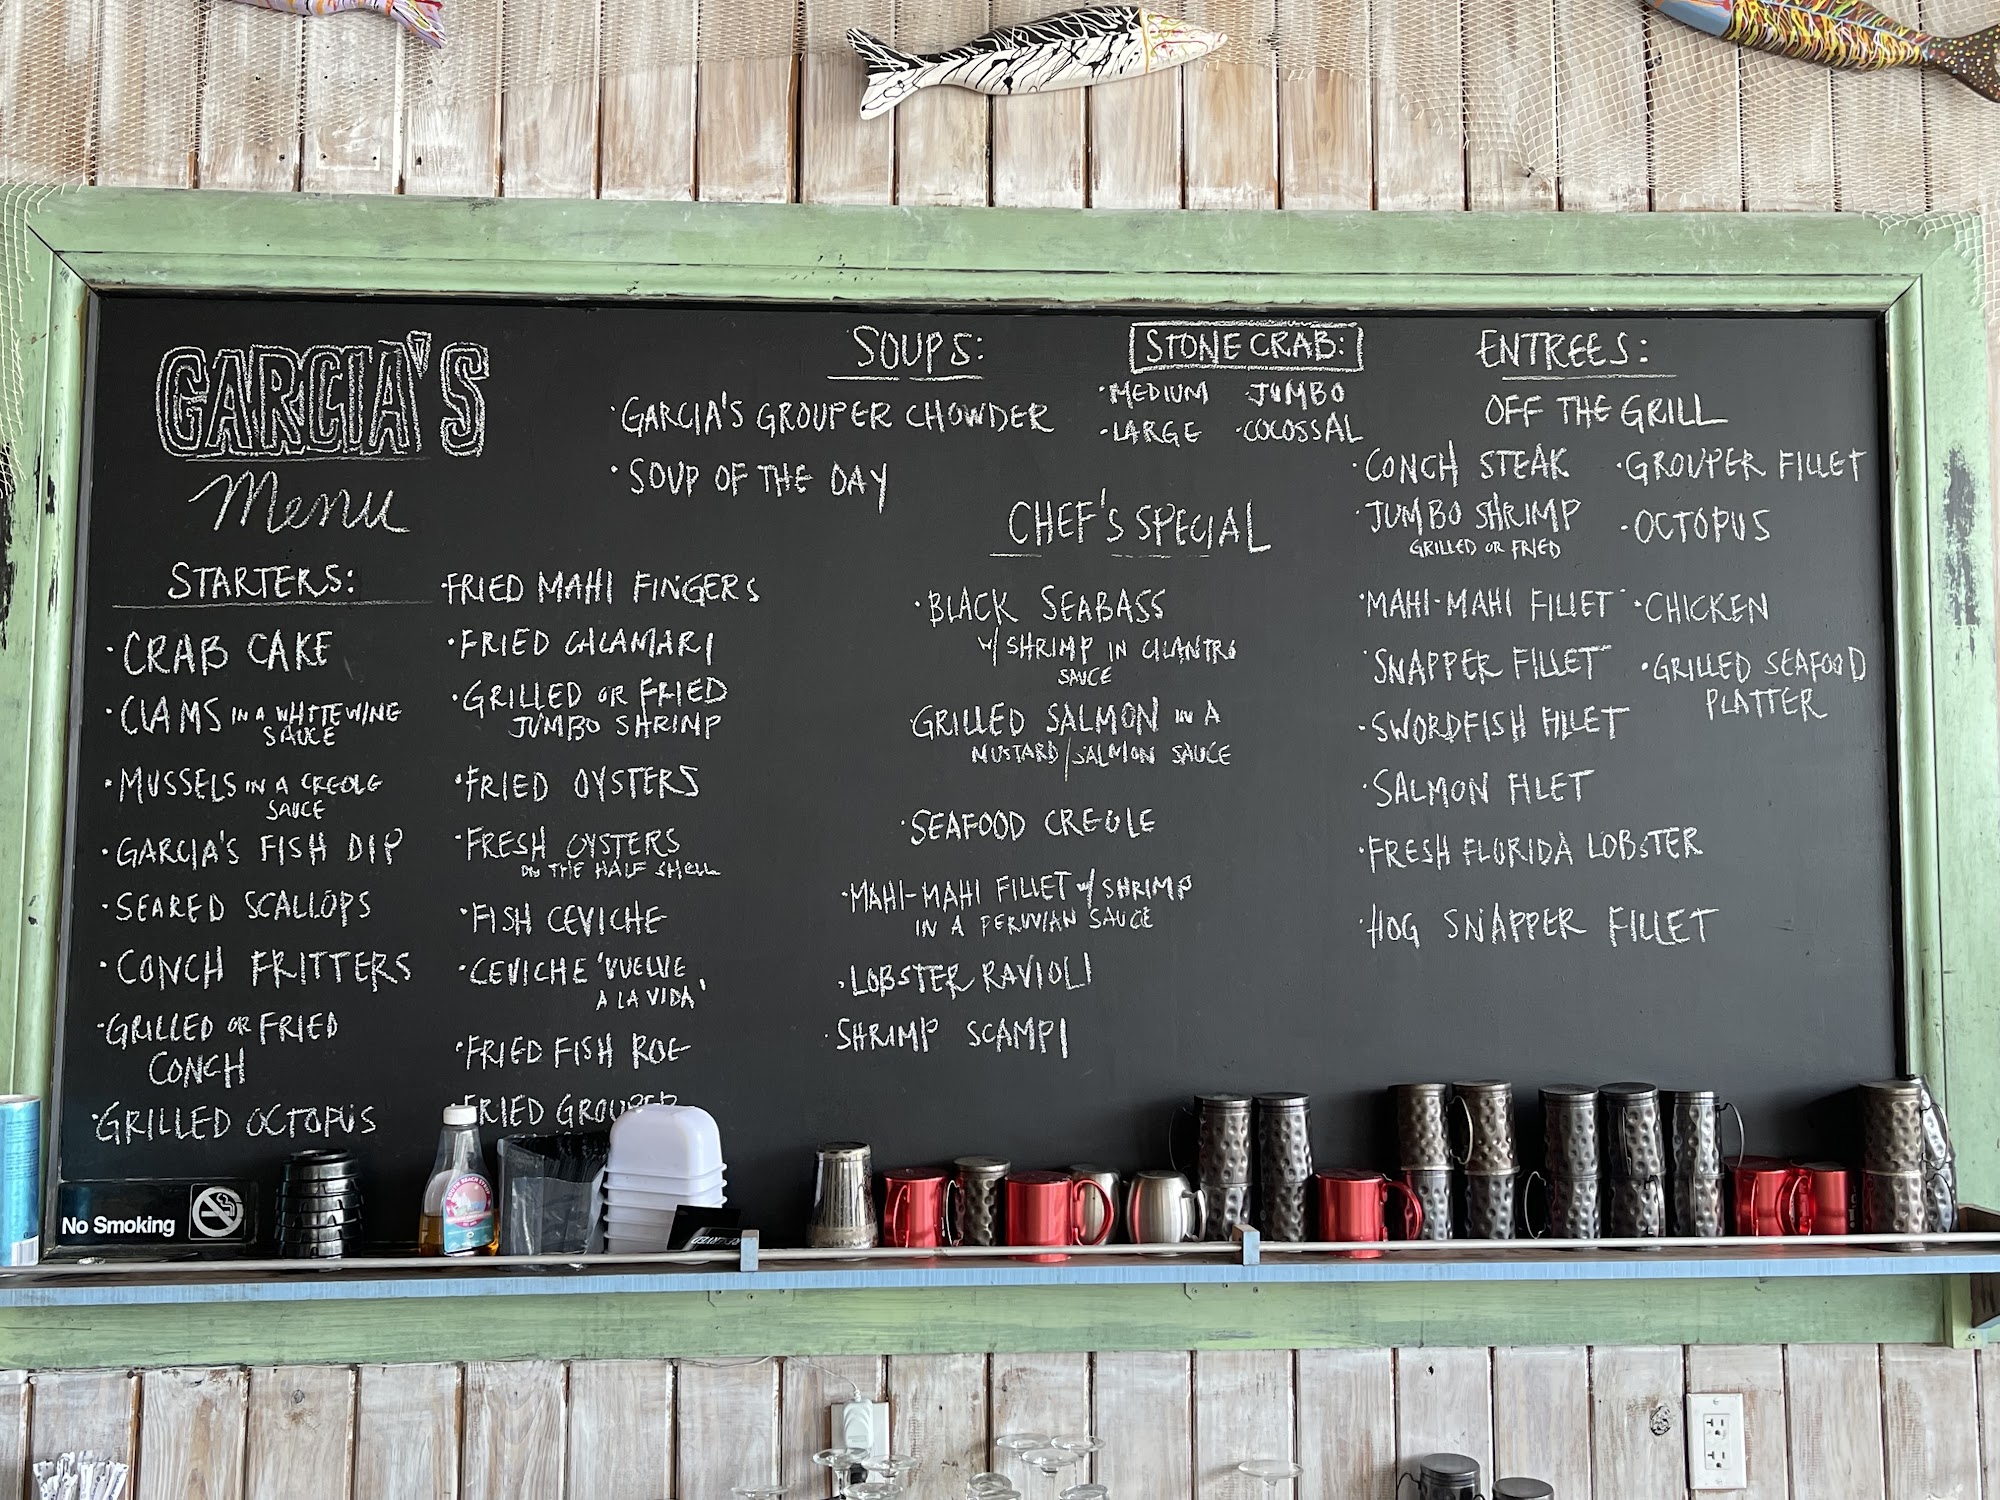 GARCIA'S
Menu
STARTERS:
· CRAB CAKE
· CLAMS IN A WHITE WINE
SAUCE
· MUSSELS IN A CREOLE
SAUCE
· GARCIA'S FISH DIP
· SEARED SCALLOPS
· CONCH FRITTERS
· GRILLED OR FRIED
CONCH
· GRILLED OCTOPUS
· FRIED MAHI FINGERS
· FRIED CALAMARI
· GRILLED OR FRIED
JUMBO SHRIMP
· FRIED OYSTERS
· FRESH OYSTERS
ON THE HALF SHELL
· FISH CEVICHE
· CEVICHE 'VUELVE
A LA VIDA'
· FRIED FISH ROE
· FRIED GROUPER
SOUPS:
· GARCIA'S GROUPER CHOWDER
· SOUP OF THE DAY
STONE CRAB:
· MEDIUM · JUMBO
· LARGE · COLOSSAL
CHEF'S SPECIAL
· BLACK SEABASS
W/ SHRIMP IN CILANTRO
SAUCE
· GRILLED SALMON IN A
MUSTARD/SALMON SAUCE
· SEAFOOD CREOLE
· MAHI-MAHI FILLET W/ SHRIMP
IN A PERUVIAN SAUCE
· LOBSTER RAVIOLI
· SHRIMP SCAMPI
ENTREES:
OFF THE GRILL
· CONCH STEAK
· JUMBO SHRIMP
GRILLED OR FRIED
· MAHI-MAHI FILLET
· SNAPPER FILLET
· SWORDFISH FILLET
· SALMON FILET
· FRESH FLORIDA LOBSTER
· HOG SNAPPER FILLET
· GROUPER FILLET
· OCTOPUS
· CHICKEN
· GRILLED SEAFOOD
PLATTER
No Smoking